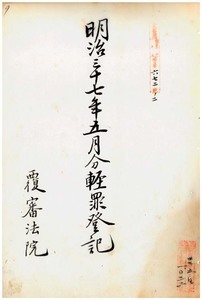 明治三十七年五月分輕罪登記
覆審法院